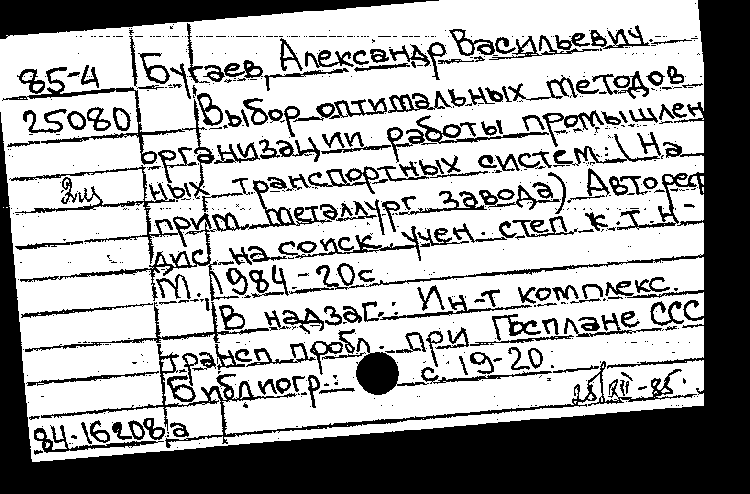 85-4 Бугаев, Александр Васильевич.
25080 Выбор оптимальных методов
организации работы промышлен
2 ных транспортных систем: (На
прим. металлург. завода) Автореф
дис. на соиск. учен. степ. к. т. н -
М. 1984. - 20 с.
В надзаг.: Ин-т комплекс.
трансп. пробл. при Госплане ССС
Библиогр.: с. 19-20.
25/XII-85.
84-16208а